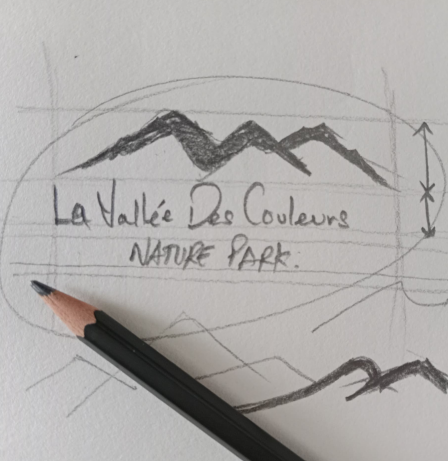 La Vallée Des Couleurs
NATURE PARK.